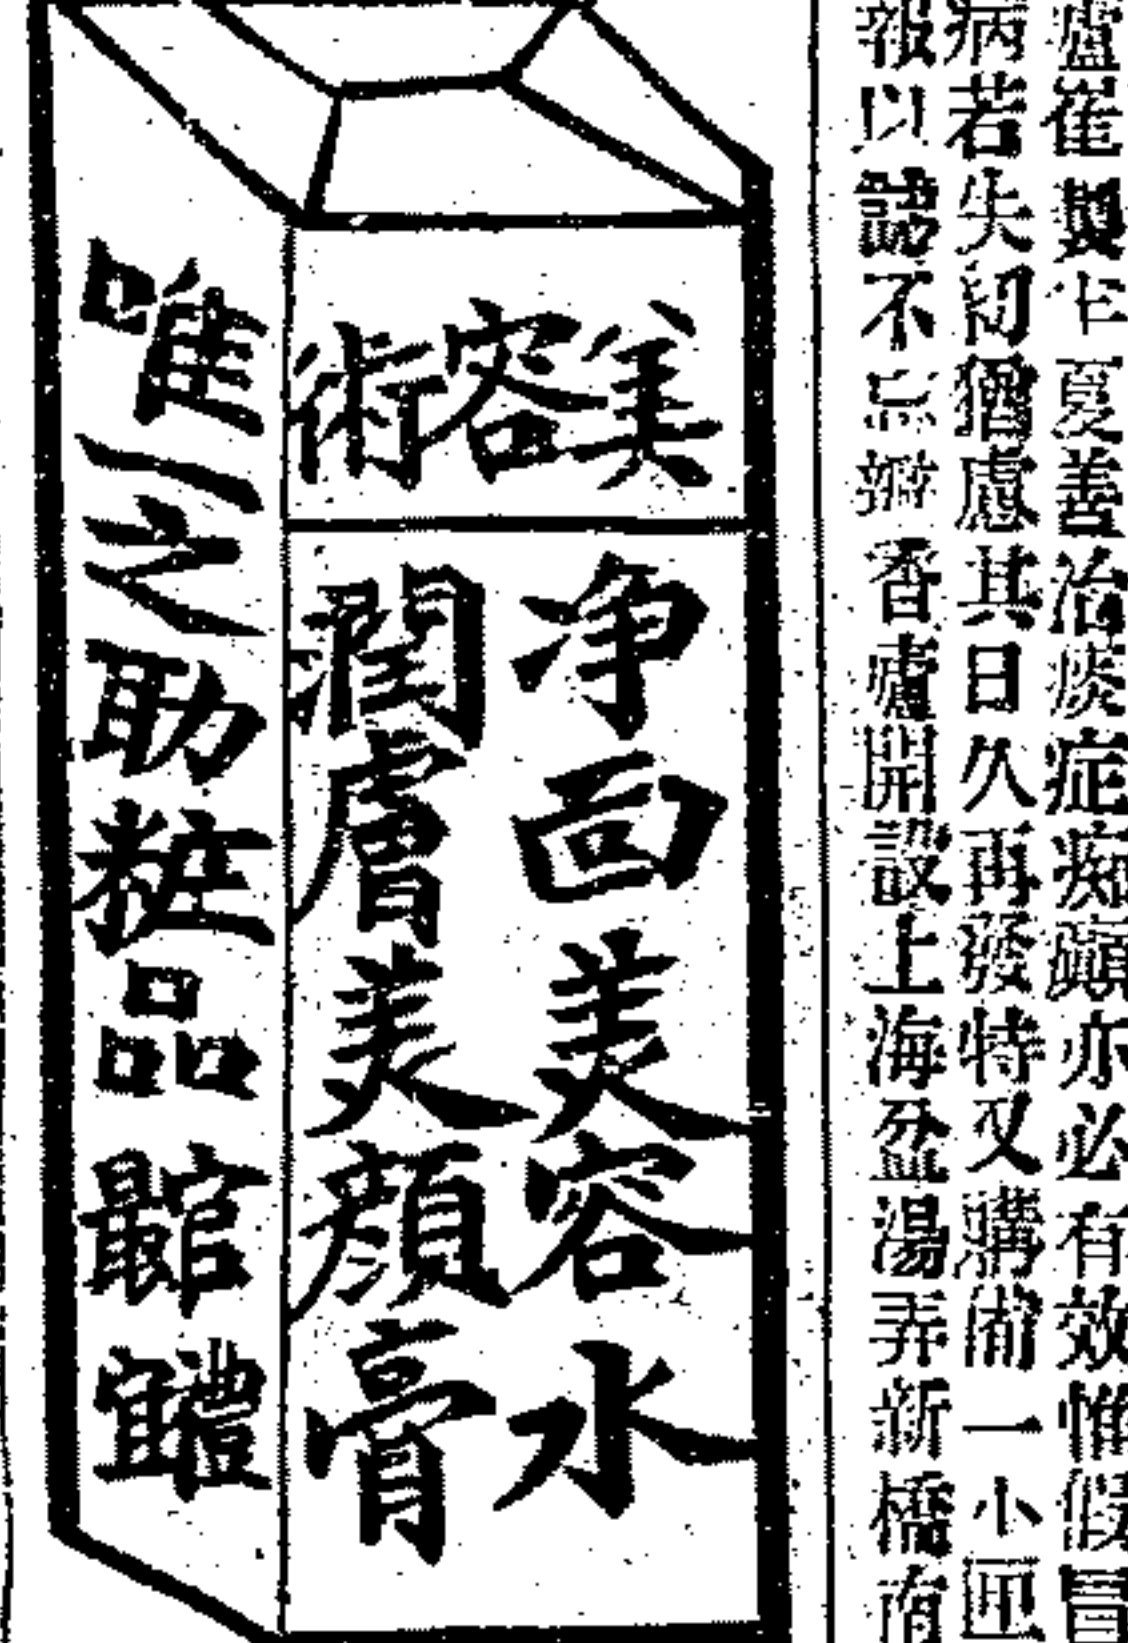 爐崔製半夏善治痰症痴癲亦必有效惟假冒
病若失初猶慮其日久再發特又購備一小匣
報以誌不忘瓣香廬開設上海盆湯弄新橋南
美容術
净面美容水
潤膚美顏膏
唯一之助粧品最宜